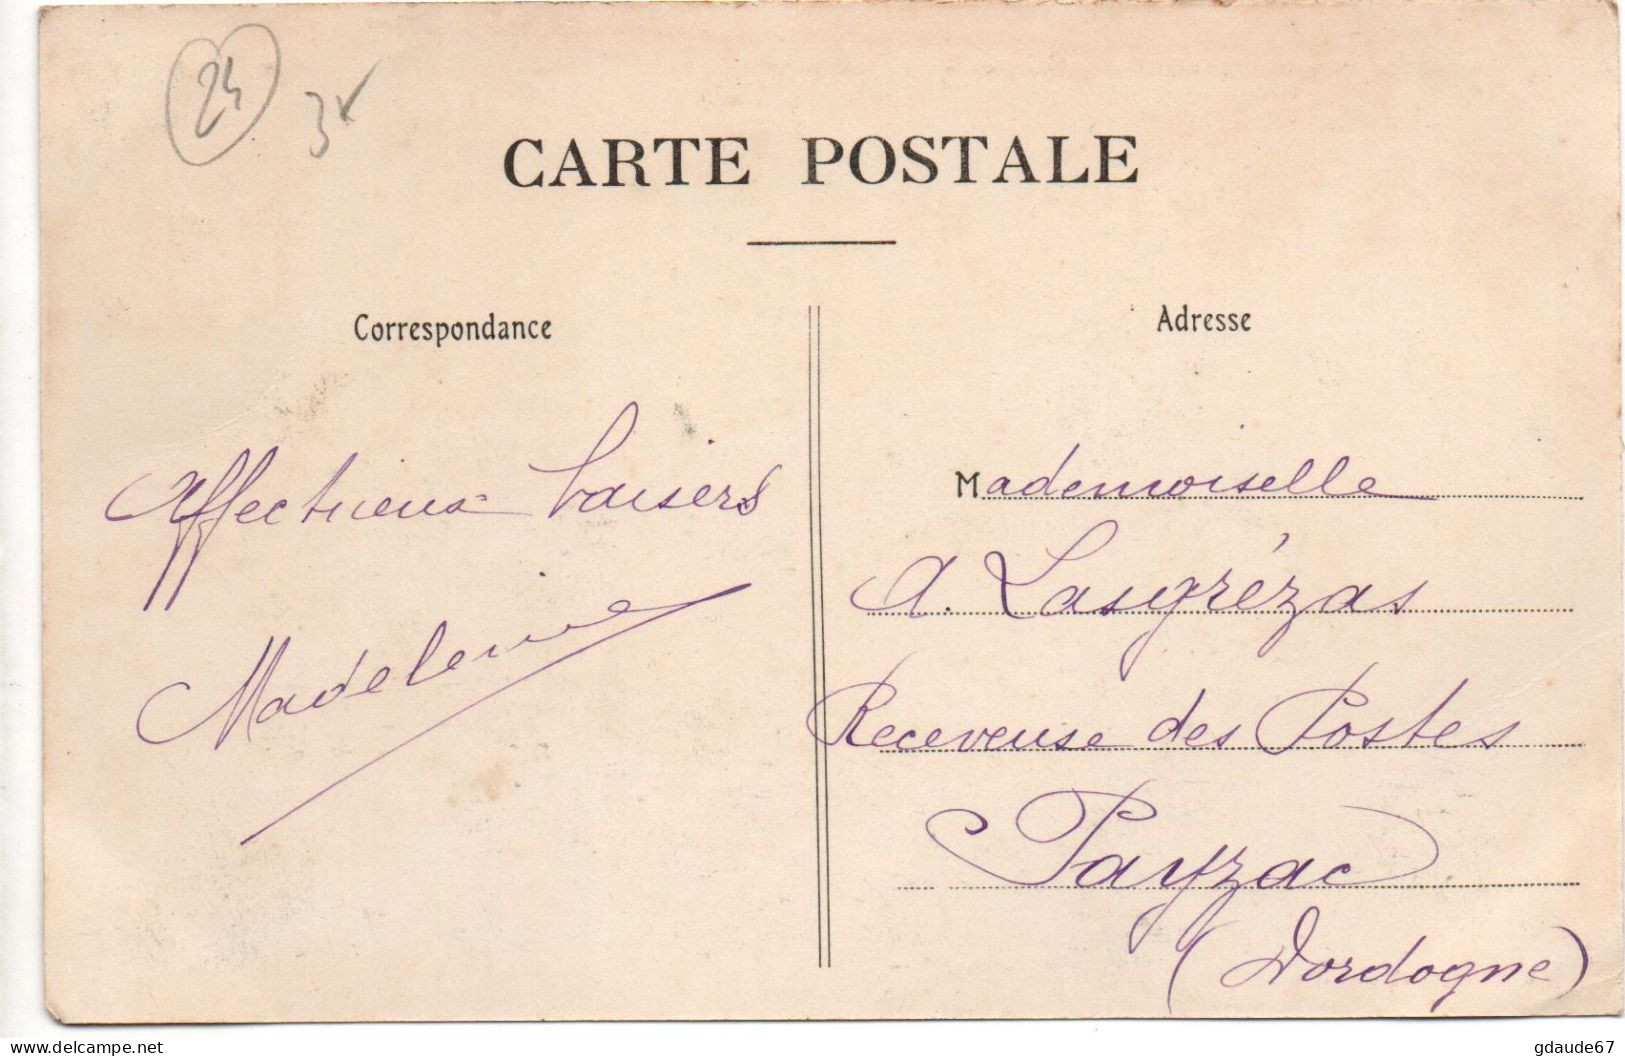 24
3
CARTE POSTALE
Correspondance
Affectueux baisers
Madeleine
Adresse
Mademoiselle
A. Lasgrézas
Receveuse des Postes
Payzac
(Dordogne)
www.delcampe.net
gdaude67